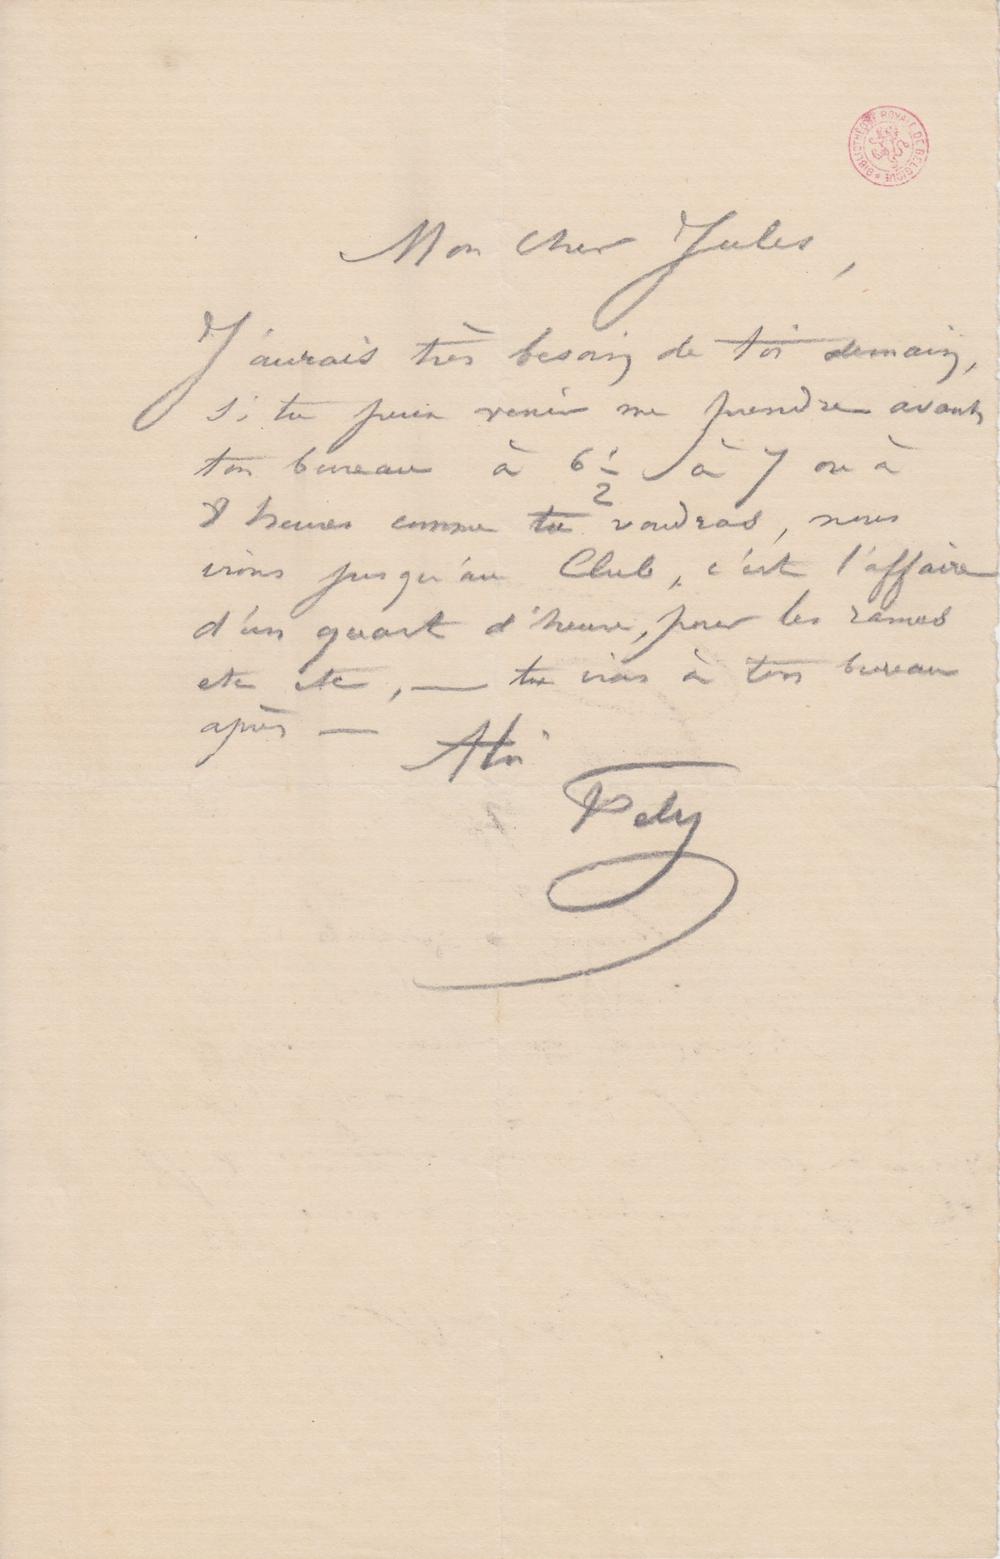 BIBLIOTHÈQUE ROYALE DE BELGIQUE
Mon cher Jules,
J'aurais très besoin de toi demain,
si tu peux venir me prendre avant
ton bureau à 6 1/2 à 7 ou à
8 heures comme tu voudras, nous
irons jusqu'au Club, c'est l'affaire
d'un quart d'heure, pour les rames
etc etc, — tu iras à ton bureau
après —
A toi
Fély